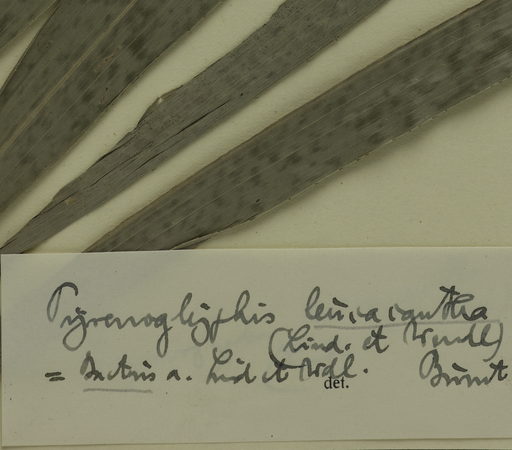 Pyrenoglyphis leucacantha
(Lind. et Wendl)
= Bactris a. Lind et Wdl. Burret
det.